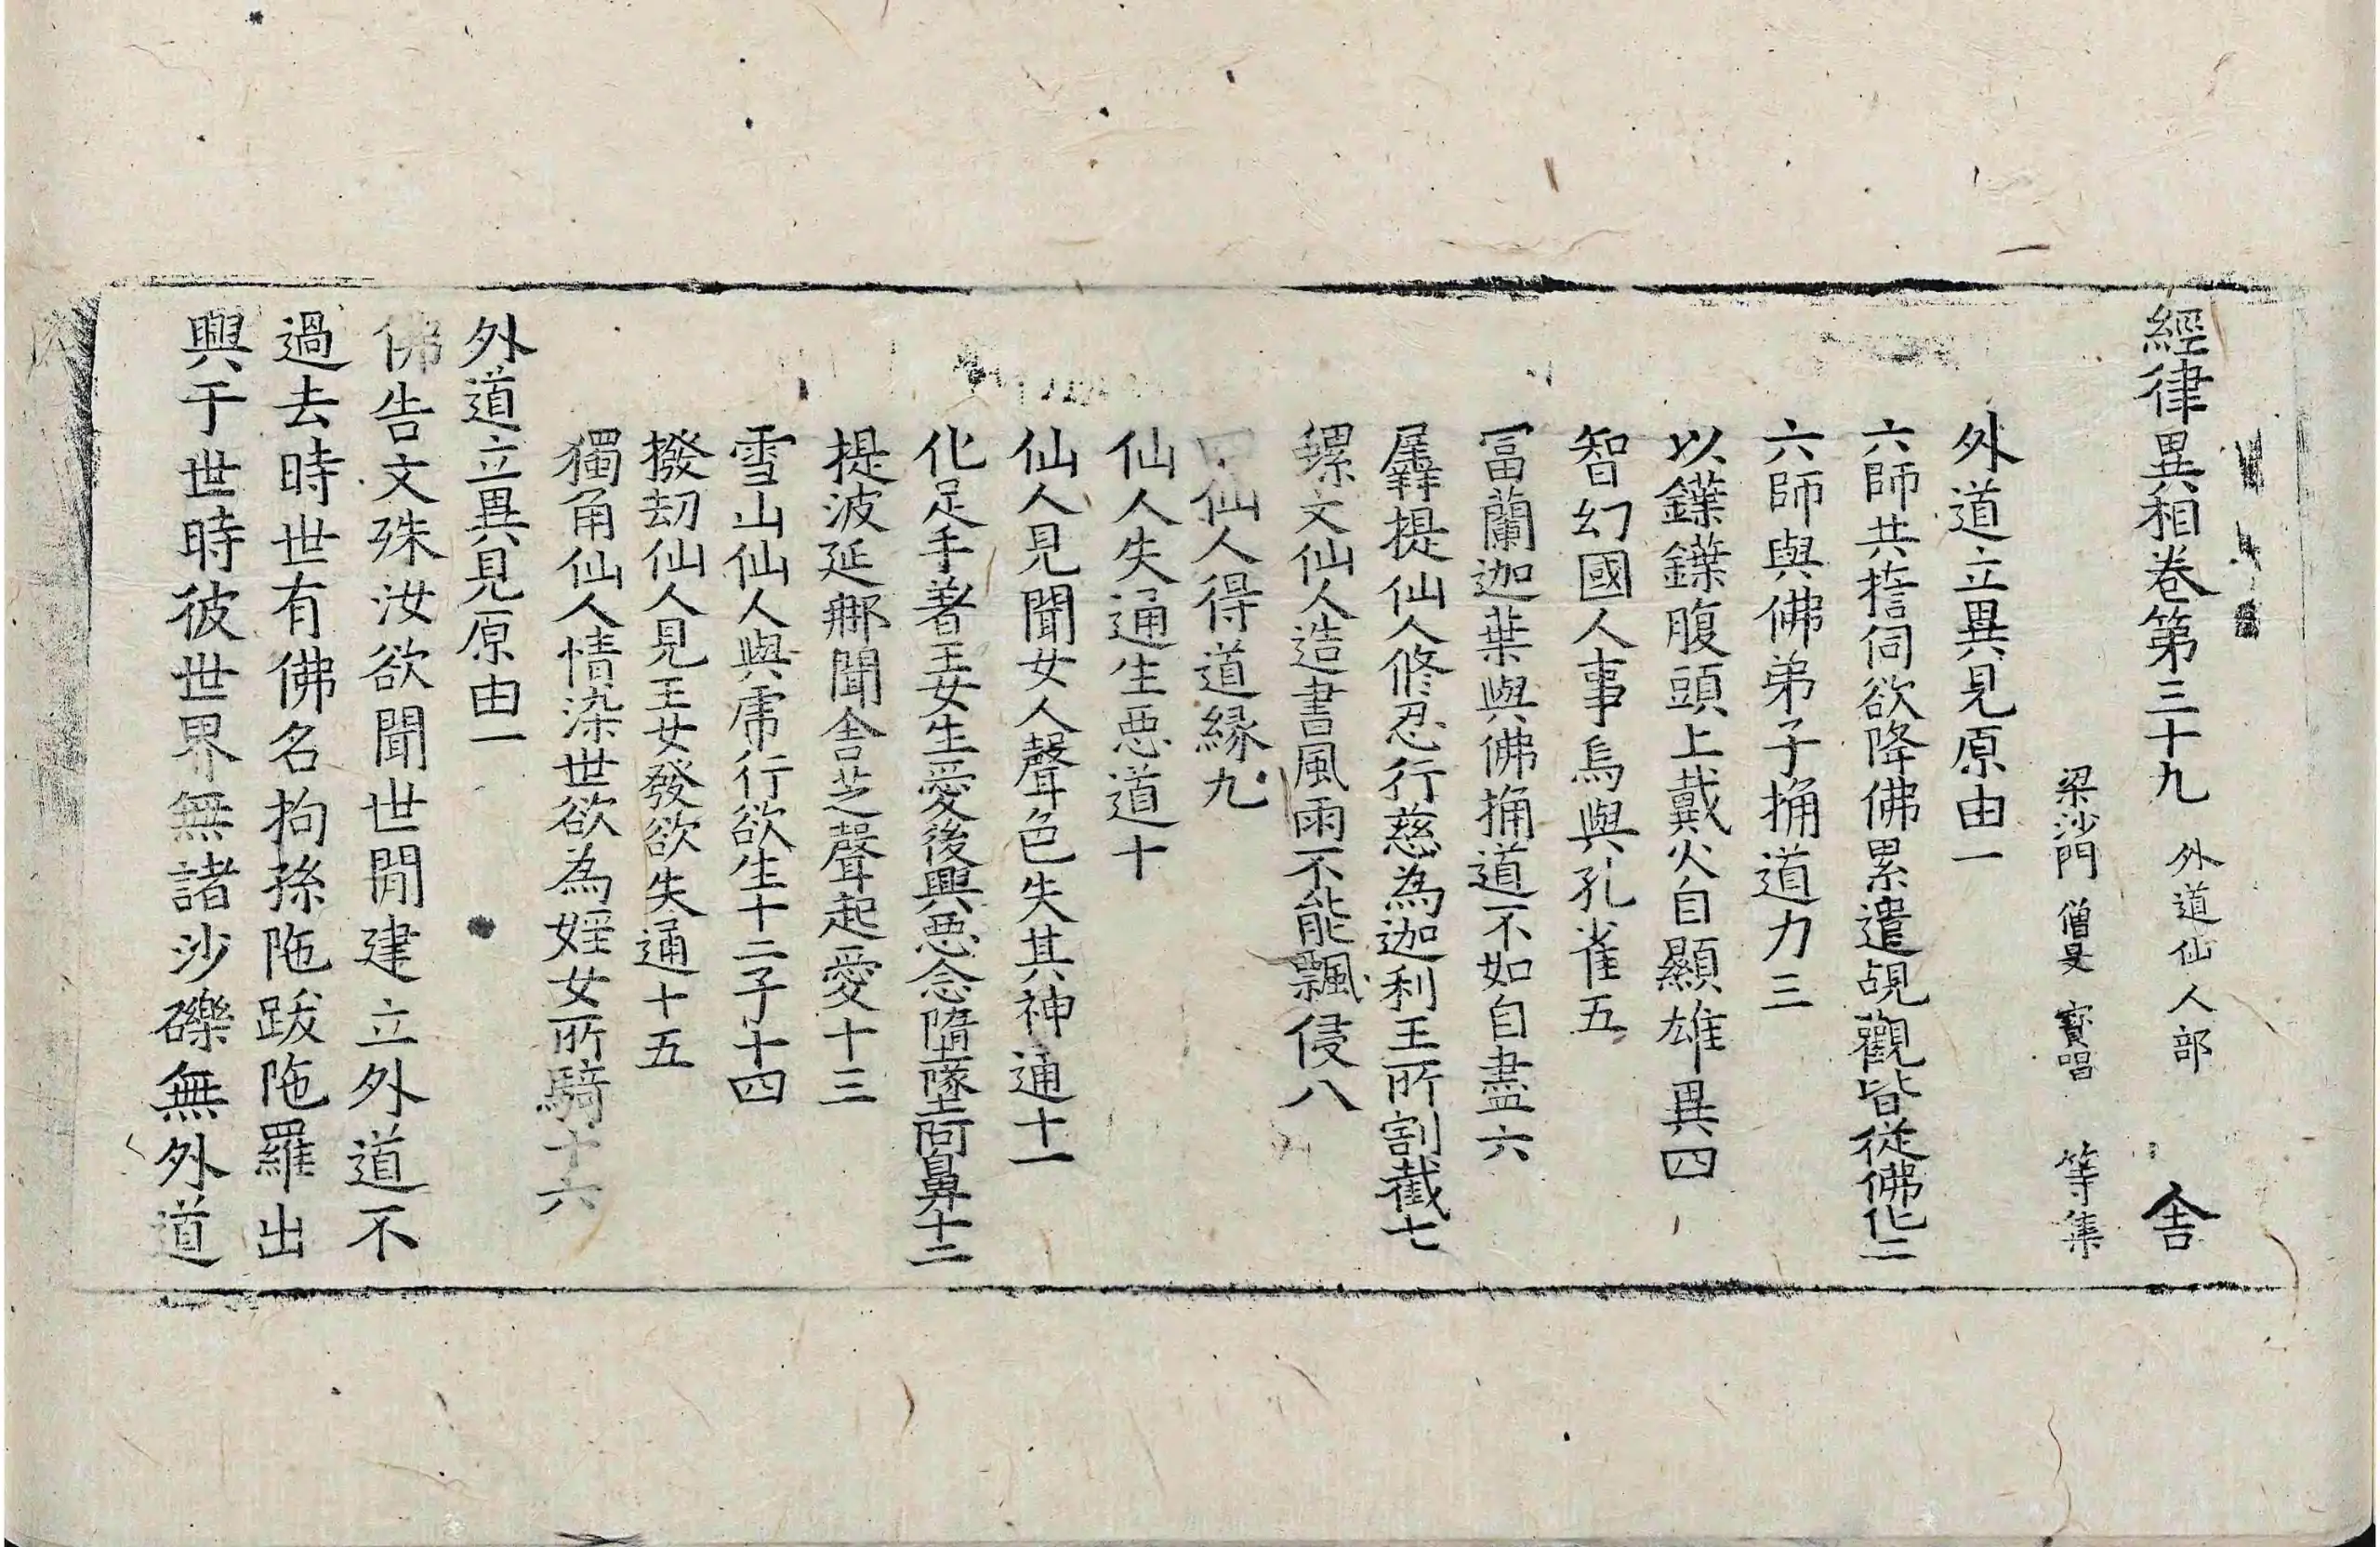 經律異相卷第三十九　外道仙人部　舎
梁沙門　僧旻　寳唱　等集
外道立異見原由一
六師共擔伺欲降佛累遣覘觀皆從佛化二
六師與佛弟子捔道力三
以鐷鐷腹頭上戴火自顯雄異四
智幻國人事烏與孔雀五
冨蘭迦葉與佛捔道不如自盡六
羼提仙人修忍行慈為迦利王所割截七
螺文仙人造書風雨不能飄侵八
四仙人得道縁九
仙人失通生惡道十
仙人見聞女人聲色失其神通十一
化足手著王女生愛後興惡念墮墜阿鼻十二
提波延郍聞舎芝聲起愛十三
雪山仙人與虎行欲生十二子十四
撥劫仙人見王女發欲失通十五
獨角仙人情染世欲為婬女所騎十六
外道立異見原由一
佛告文殊汝欲聞世閒建立外道不
過去時世有佛名拘孫陁跋陁羅出
興于世時彼世界無諸沙礫無外道